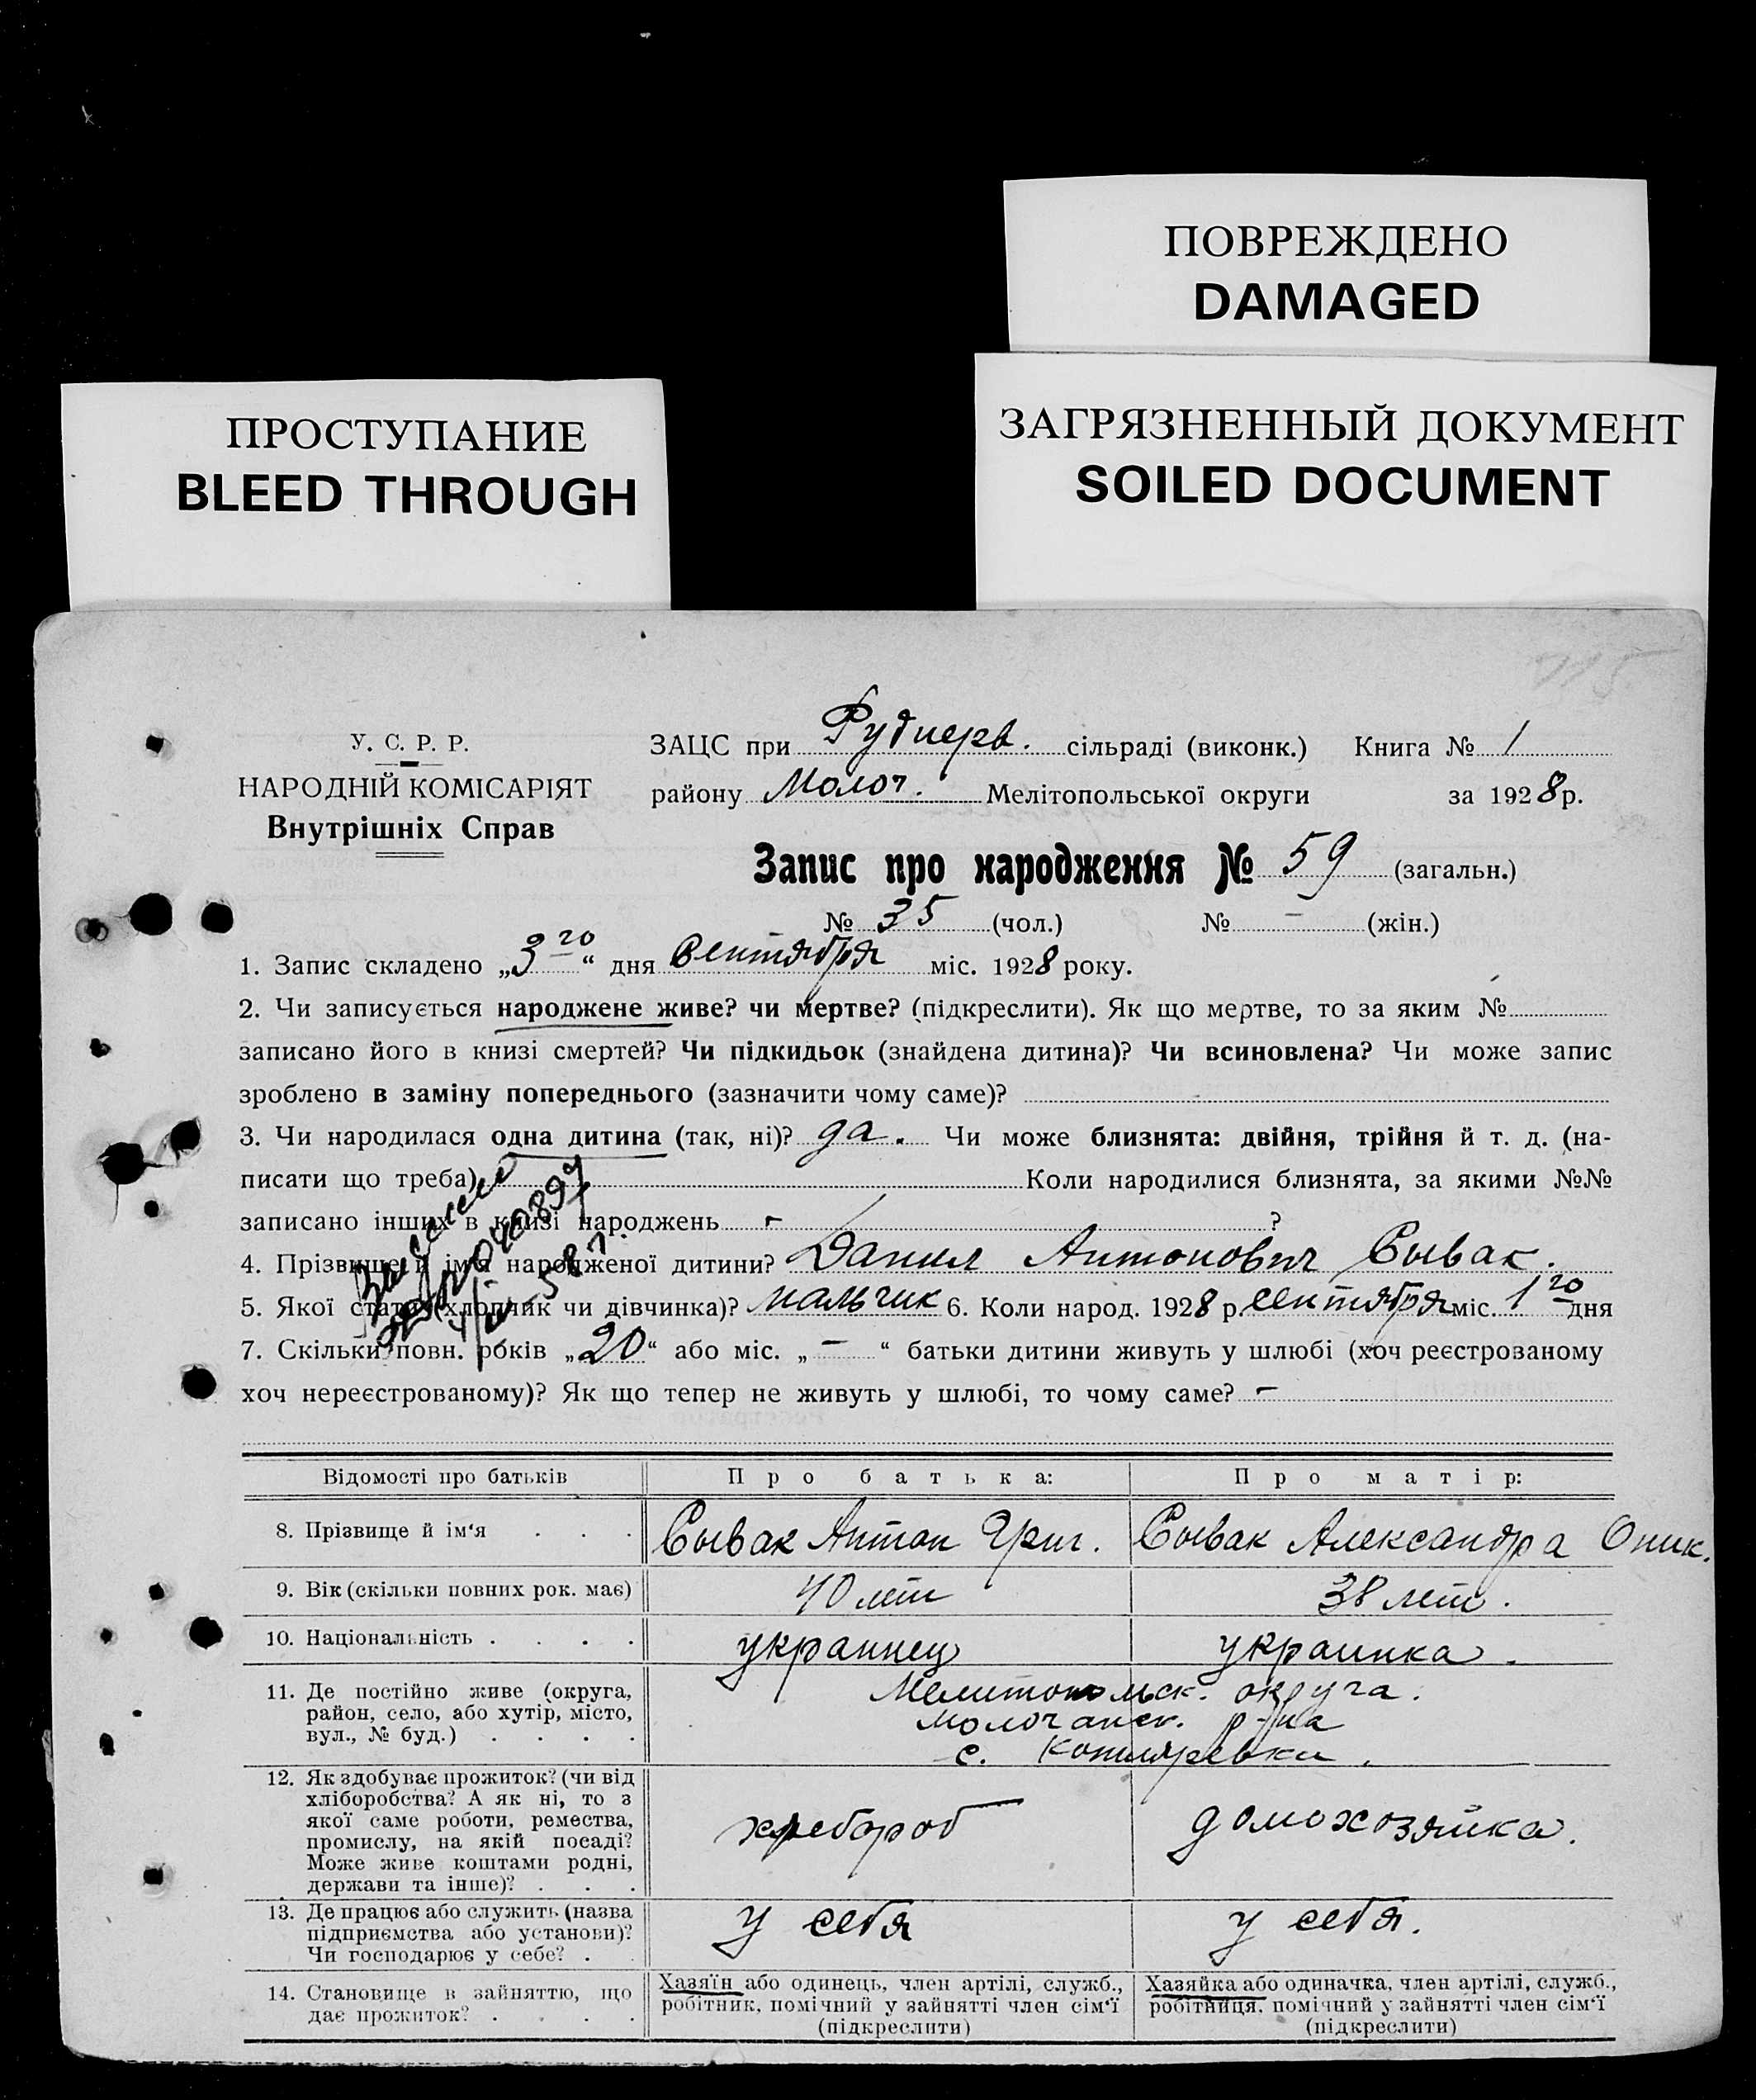 ПОВРЕЖДЕНО
DAMAGED
ПРОСТУПАНИЕ
BLEED THROUGH
ЗАГРЯЗНЕННЫЙ ДОКУМЕНТ
SOILED DOCUMENT
115
У. С. Р. Р.
НАРОДНІЙ КОМІСАРІЯТ
Внутрішніх Справ
ЗАЦС при Руднерв. сільраді (виконк.) Книга № 1
району Молоч. Мелітопольської округи за 1928 р.
Запис про народження № 59 (загальн.)
№ 35 (чол.) № – (жін.)
1. Запис складено „3го“ дня Сентября міс. 1928 року.
2. Чи записується народжене живе? чи мертве? (підкреслити). Як що мертве, то за яким №
записано його в книзі смертей? Чи підкидьок (знайдена дитина)? Чи всиновлена? Чи може запис
зроблено в заміну попереднього (зазначити чому саме)?
3. Чи народилася одна дитина (так, ні)? да. Чи може близнята: двійня, трійня й т. д. (на-
писати що треба) Коли народилися близнята, за якими №№
записано інших в книзі народжень – ?
4. Прізвище й ім'я народженої дитини? Данил Антонович Сывак.
5. Якої статі (хлопчик чи дівчинка)? мальчик 6. Коли народ. 1928 р. сентября міс. 1го дня
7. Скільки повн. років „20“ або міс. „–“ батьки дитини живуть у шлюбі (хоч реєстрованому
хоч нереєстрованому)? Як що тепер не живуть у шлюбі, то чому саме? –
Відомості про батьків Про батька: Про матір:
8. Прізвище й ім'я . . . Сывак Антон Григ. Сывак Александра Оник.
9. Вік (скільки повних рок. має) 40 лет 38 лет.
10. Національність . . . . украинец украинка.
11. Де постійно живе (округа,
район, село, або хутір, місто,
вул., № буд.) . . . .
Мелитопольск. округа.
Молочанск. р-на
с. Котляревка.
12. Як здобуває прожиток? (чи від
хліборобства? А як ні, то з
якої саме роботи, ремества,
промислу, на якій посаді?
Може живе коштами родні,
держави та інше)? . . .
хлебороб домохозяйка.
13. Де працює або служить (назва
підприємства або установи)?
Чи господарює у себе? .
у себя у себя.
14. Становище в зайняттю, що
дає прожиток? . . . .
Хазяїн або одинець, член артілі, служб.,
робітник, помічний у зайнятті член сім'ї
(підкреслити)
Хазяйка або одиначка, член артілі, служб.,
робітниця, помічний у зайнятті член сім'ї
(підкреслити)